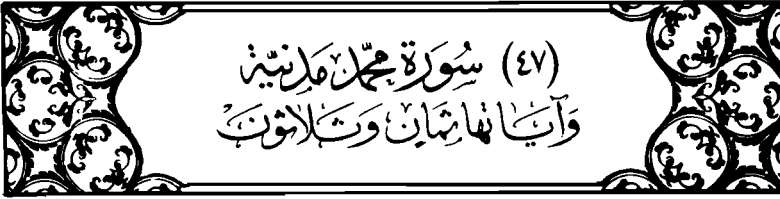 (٤٧) سُورَة مُحَمَّد مَدَنيَّة
وَآيَاتهَا ثمَانِ وَثَلاثونَ